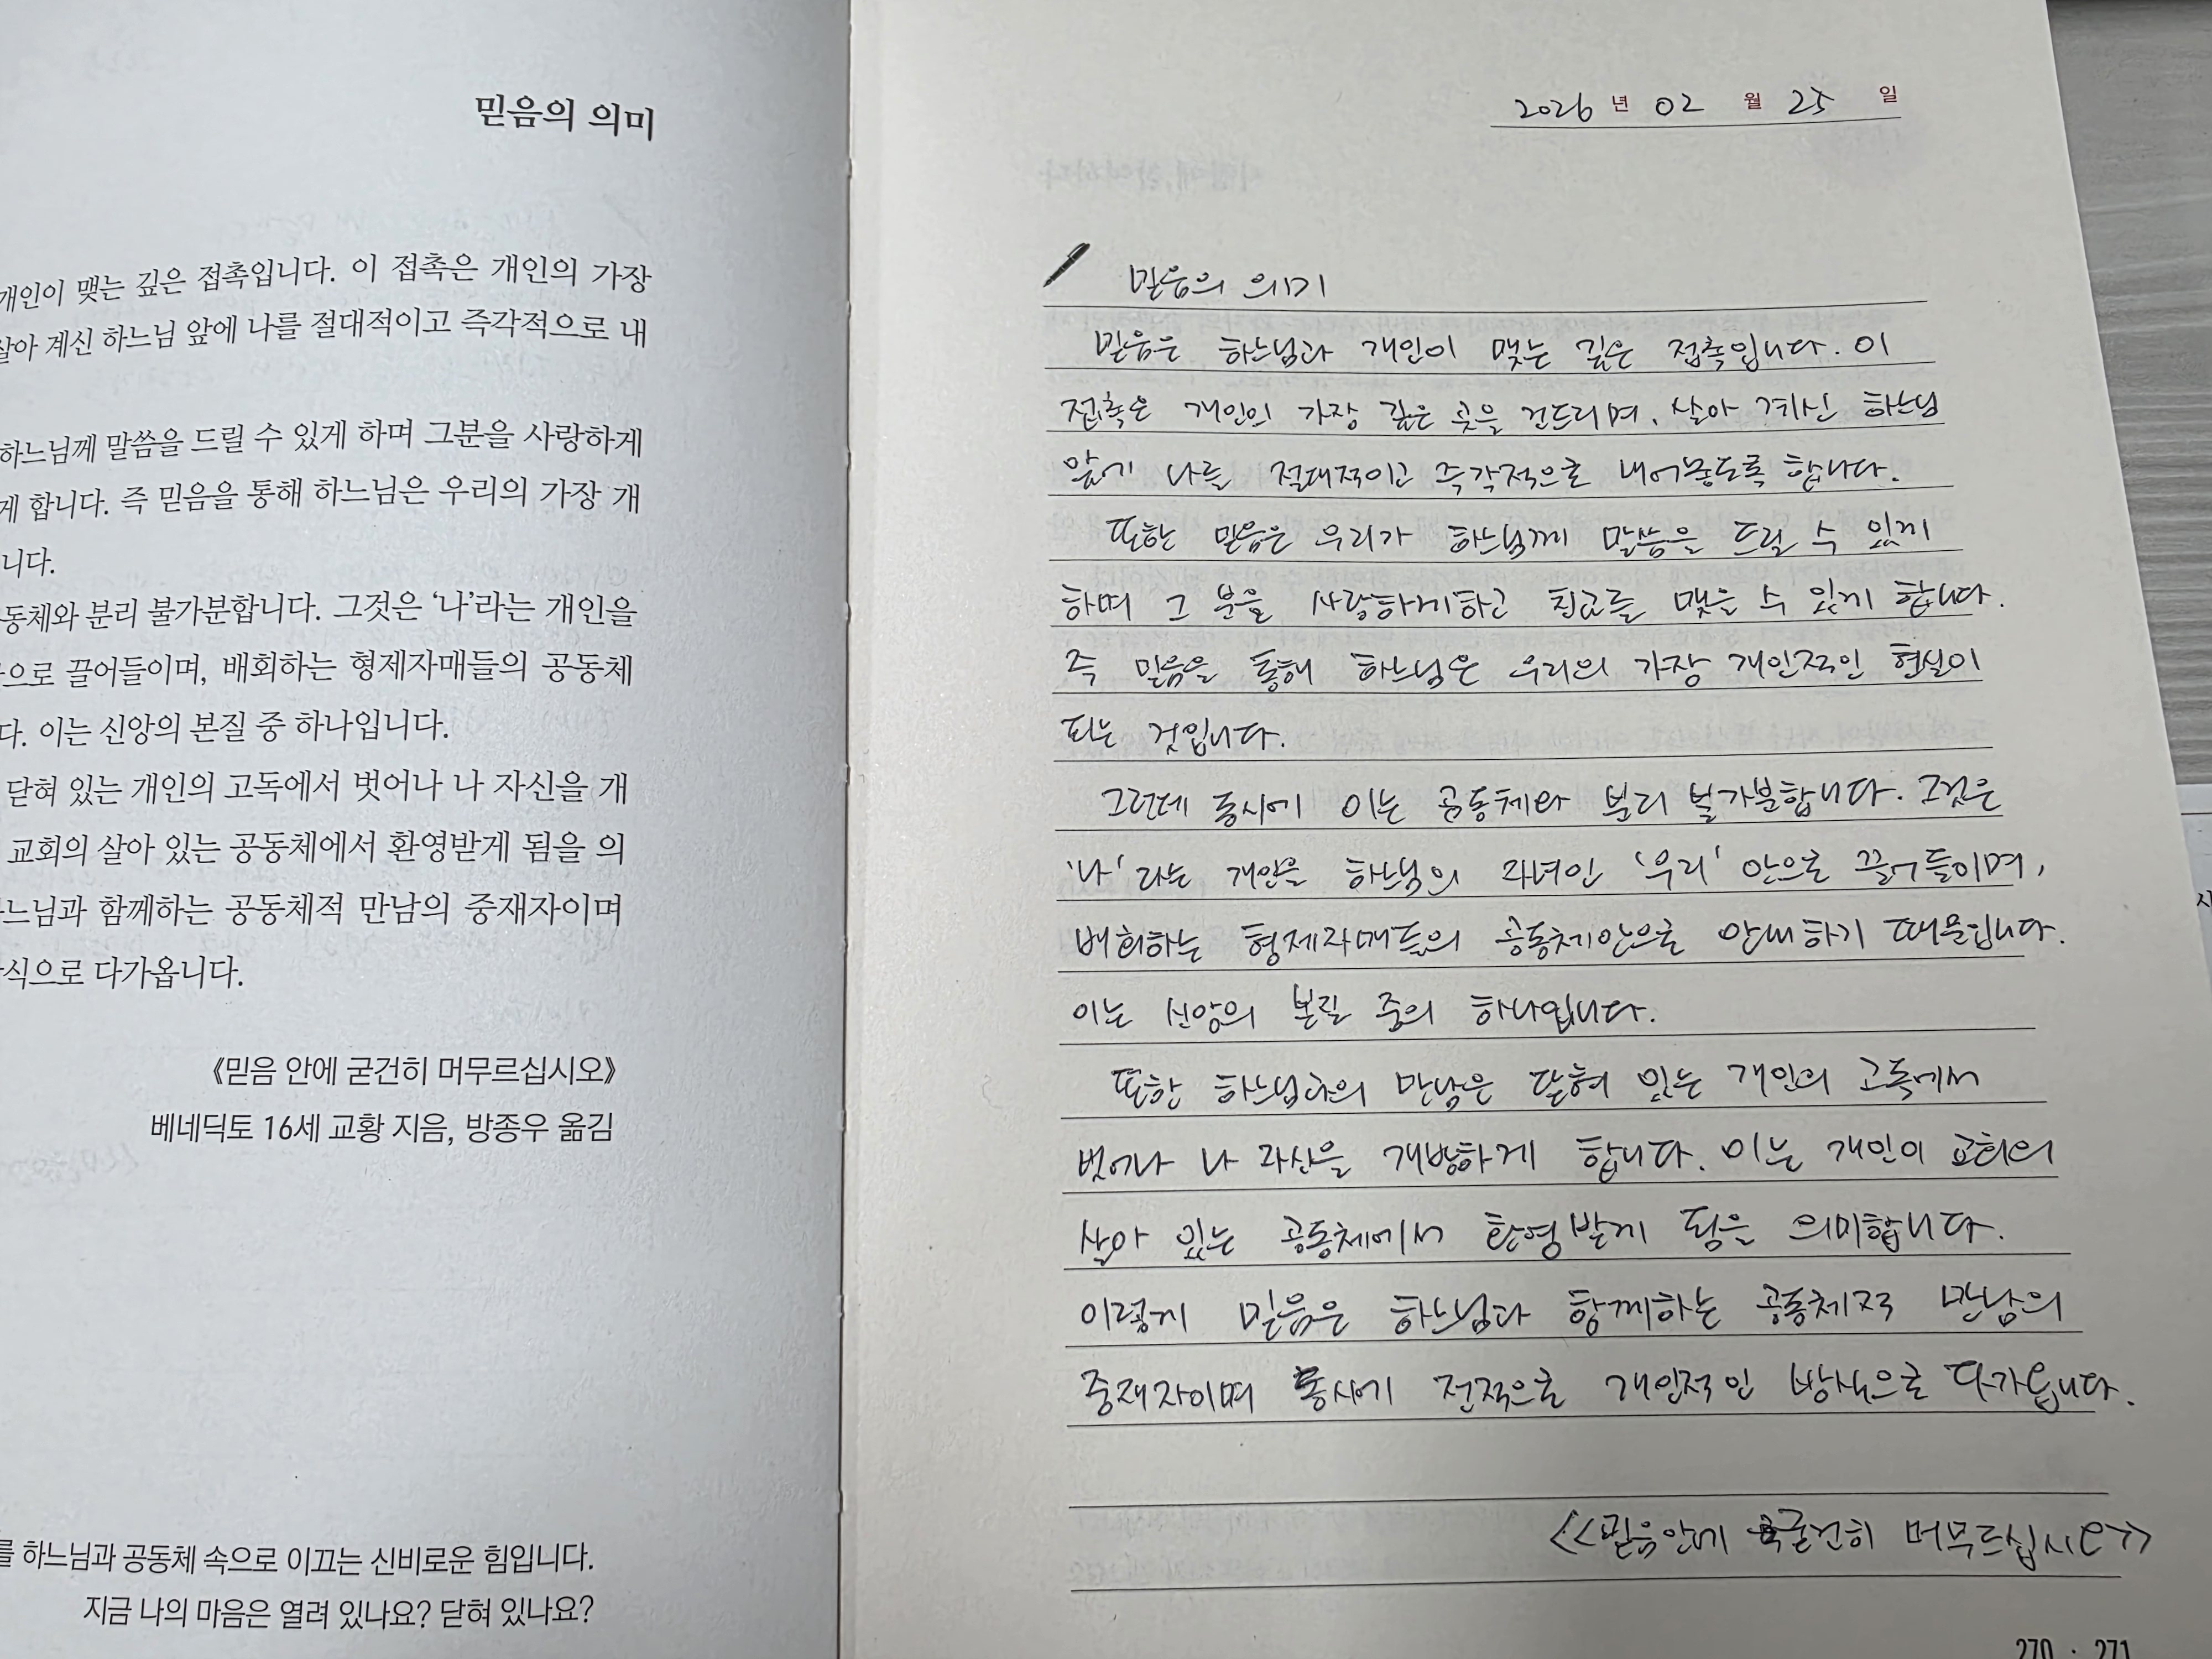 믿음의 의미
개인이 맺는 깊은 접촉입니다. 이 접촉은 개인의 가장
살아 계신 하느님 앞에 나를 절대적이고 즉각적으로 내
하느님께 말씀을 드릴 수 있게 하며 그분을 사랑하게
게 합니다. 즉 믿음을 통해 하느님은 우리의 가장 개
니다.
동체와 분리 불가분합니다. 그것은 ‘나’라는 개인을
으로 끌어들이며, 배회하는 형제자매들의 공동체
다. 이는 신앙의 본질 중 하나입니다.
닫혀 있는 개인의 고독에서 벗어나 나 자신을 개
교회의 살아 있는 공동체에서 환영받게 됨을 의
느님과 함께하는 공동체적 만남의 중재자이며
식으로 다가옵니다.
《믿음 안에 굳건히 머무르십시오》
베네딕토 16세 교황 지음, 방종우 옮김
를 하느님과 공동체 속으로 이끄는 신비로운 힘입니다.
지금 나의 마음은 열려 있나요? 닫혀 있나요?
2026 년 02 월 25 일
믿음의 의미
믿음은 하느님과 개인이 맺는 깊은 접촉입니다. 이
접촉은 개인의 가장 깊은 곳을 건드리며, 살아 계신 하느님
앞에 나를 절대적이고 즉각적으로 내어놓도록 합니다.
또한 믿음은 우리가 하느님께 말씀을 드릴 수 있게
하며 그 분을 사랑하게하고 친교를 맺을 수 있게 합니다.
즉 믿음을 통해 하느님은 우리의 가장 개인적인 현실이
되는 것입니다.
그런데 동시에 이는 공동체와 분리 불가분합니다. 그것은
'나'라는 개인을 하느님의 자녀인 '우리' 안으로 끌어들이며,
배회하는 형제자매들의 공동체안으로 안내하기 때문입니다.
이는 신앙의 본질 중의 하나입니다.
또한 하느님과의 만남은 닫혀 있는 개인의 고독에서
벗어나 나 자신을 개방하게 합니다. 이는 개인이 교회의
살아 있는 공동체에서 환영받게 됨을 의미합니다.
이렇게 믿음은 하느님과 함께하는 공동체적 만남의
중재자이며 동시에 전적으로 개인적인 방식으로 다가옵니다.
<<믿음안에 굳건히 머무르십시오>>
270 · 271